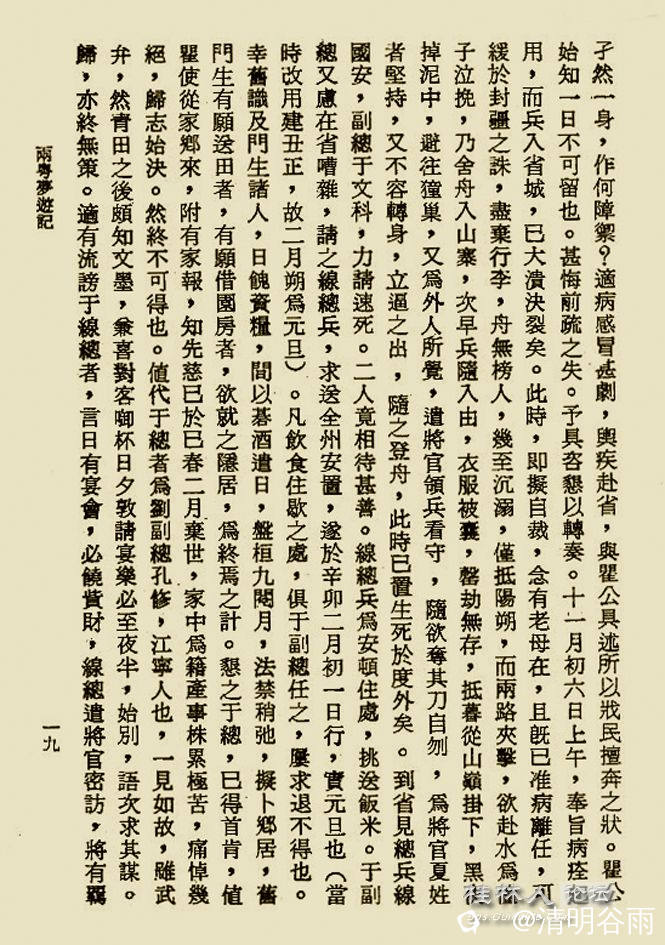 孑然一身，作何障禦？適病感冒甚劇，輿疾赴省，與瞿公具述所以戕民擅奔之狀。瞿公
始知一日不可留也。甚悔前疏之失。予具咨懇以轉奏。十一月初六日上午，奉旨病痊
用，而兵入省城，已大潰決裂矣。此時，即擬自裁，念有老母在，且旣已准病離任，可
緩於封疆之誅，盡棄行李，舟無榜人，幾至沉溺，僅抵陽朔，而兩路夾擊，欲赴水爲
子泣挽，乃舍舟入山寨，次早兵隨入由，衣服被囊，罄劫無存，抵暮從山巔掛下，黑
掉泥中，避往獞巢，又爲外人所覺，遣將官領兵看守，隨欲奪其刀自刎，爲將官夏姓
者堅持，又不容轉身，立逼之出，隨之登舟，此時已置生死於度外矣。到省見總兵線
國安，副總于文科，力請速死。二人竟相待甚善。線總兵爲安頓住處，挑送飯米。于副
總又慮在省嘈雜，請之線總兵，求送全州安置，遂於辛卯二月初一日行，實元旦也（當
時改用建丑正，故二月朔爲元旦）。凡飲食住歇之處，俱于副總任之，屢求退不得也。
幸舊識及門生諸人，日餽資糧，間以碁酒遣日，盤桓九閱月，法禁稍弛，擬卜鄉居，舊
門生有願送田者，有願借園房者，欲就之隱居，爲終焉之計。懇之于總，已得首肯，値
瞿使從家鄉來，附有家報，知先慈已於巳春二月棄世，家中爲籍產事株累極苦，痛悼幾
絕，歸志始決。然終不可得也。値代于總者爲劉副總孔修，江寧人也，一見如故，雖武
弁，然靑田之後頗知文墨，兼喜對客啣杯日夕敦請宴樂必至夜半，始別，語次求其謀。
歸，亦終無策。適有流謗于線總者，言日有宴會，必饒貲財，線總遣將官密訪，將有羈
兩粵夢遊記
一九
桂林人论坛
@清明谷雨